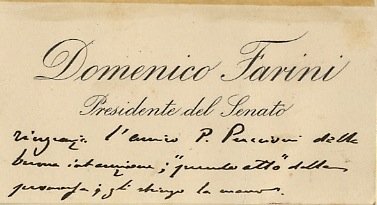 Domenico Farini
Presidente del Senato
ringrazia l'amico P. Puccioni della
buona intenzione; "prende atto" della
promessa; gli stringe la mano.